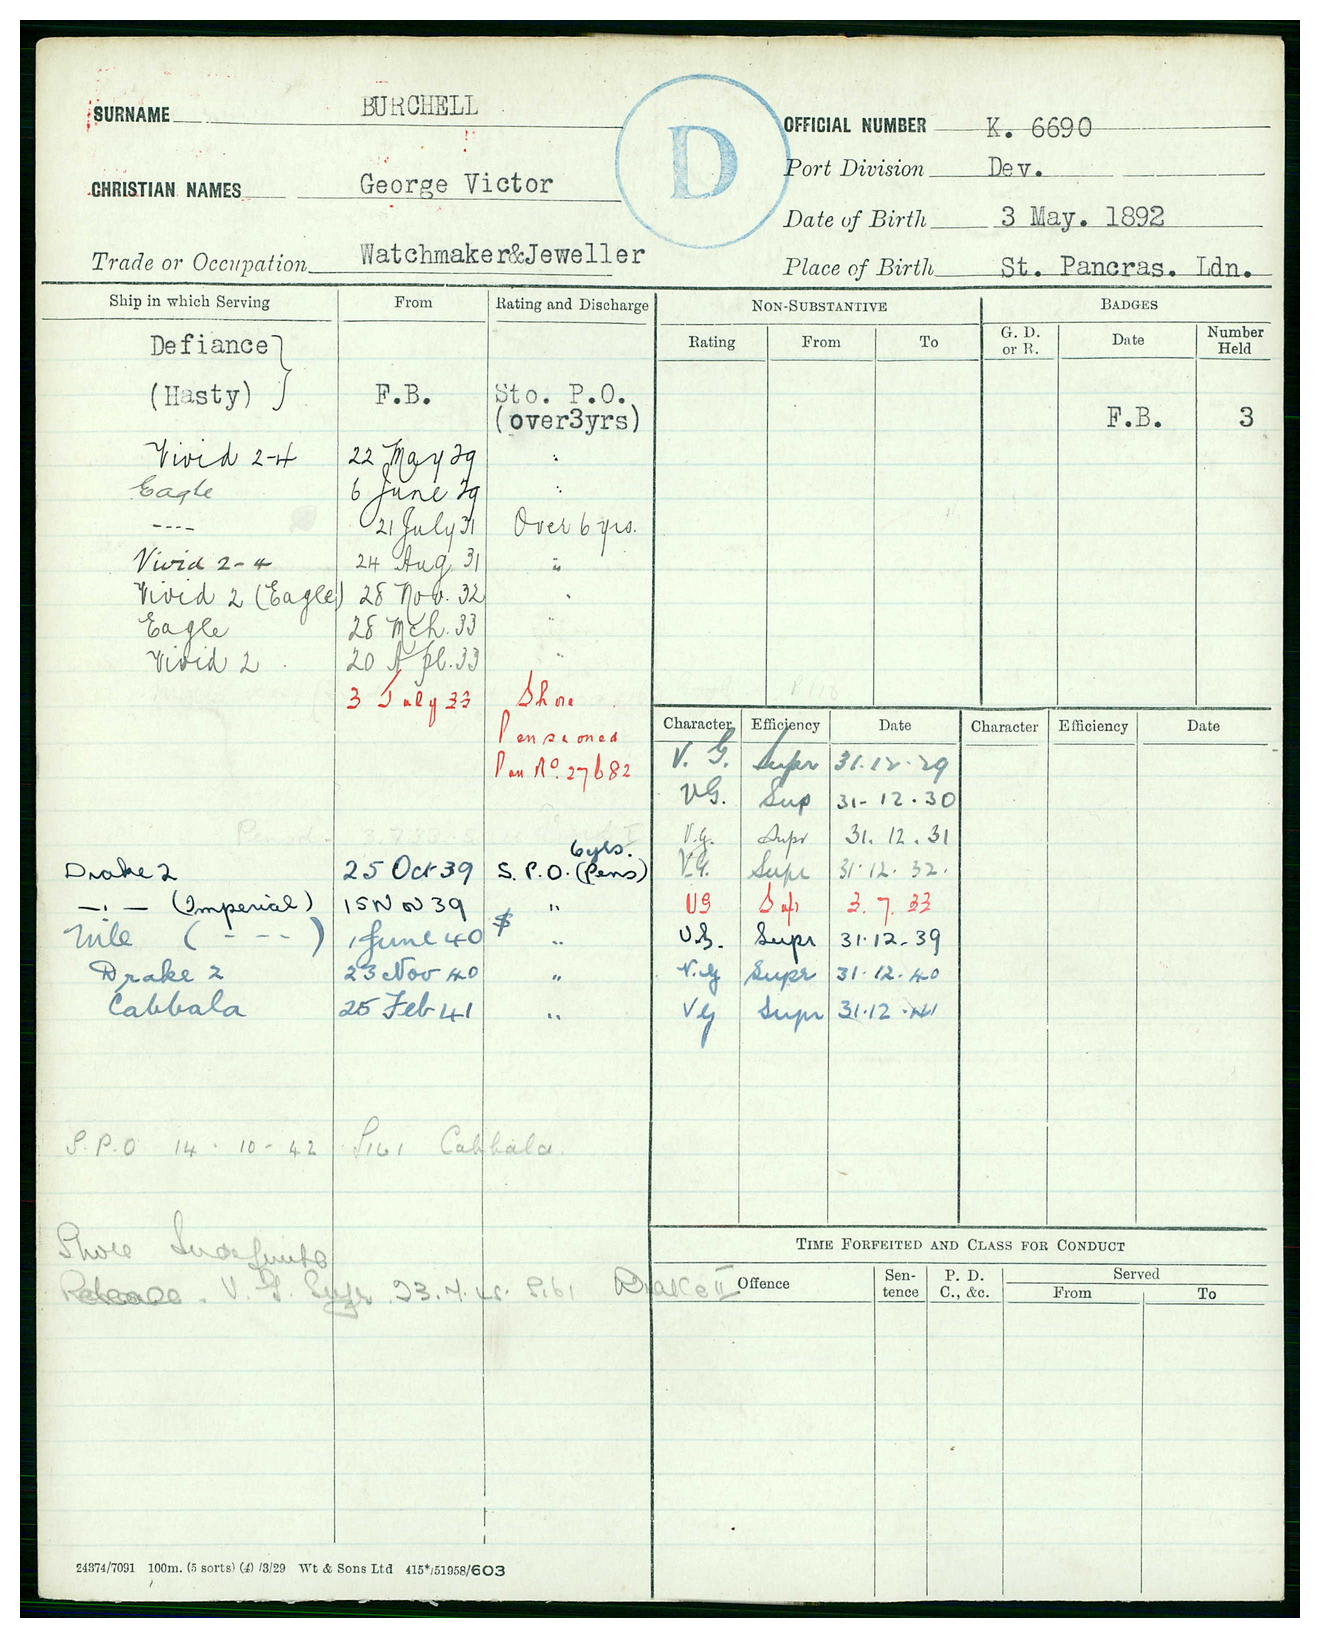 SURNAME BURCHELL
D
OFFICIAL NUMBER K. 6690
Port Division Dev.
CHRISTIAN NAMES George Victor
Date of Birth 3 May. 1892
Trade or Occupation Watchmaker&Jeweller
Place of Birth St. Pancras. Ldn.
Ship in which Serving From Rating and Discharge
Defiance
(Hasty) F.B. Sto. P.O.
(over3yrs)
Vivid 2-4 22 May 29 "
Eagle 6 June 29 "
---- 21 July 31 Over 6 yrs.
Vivid 2-4 24 Aug 31 "
Vivid 2 (Eagle) 28 Nov. 32 "
Eagle 28 Mch. 33 "
Vivid 2 20 Apl. 33 "
3 July 33 Shore
Pensioned
Pen No. 27682
6yrs.
Drake 2 25 Oct 39 S.P.O. (Pens)
—"— (Imperial) 15 Nov 39 "
Nile ( - - - ) 1 June 40 $ "
Drake 2 23 Nov 40 "
Cabbala 25 Feb 41 "
S.P.O 14 - 10 - 42 S161 Cabbala.
Shore Indefinite
Release. V. G. Supr 23.4.45. S161 Drake II
24374/7091 100m. (5 sorts) (4) /3/29 Wt & Sons Ltd 415*/51958/603
NON-SUBSTANTIVE
Rating From To
BADGES
G. D. or R. Date Number Held
F.B. 3
Character Efficiency Date Character Efficiency Date
V. G. Supr 31.12.29
VG. Sup 31-12.30
V.g. Supr 31.12.31
V.G. Supr 31.12.32.
VG Sup 3.7.33
V.G. Supr 31.12.39
V.g Supr 31.12.40
Vg Supr 31.12.41
TIME FORFEITED AND CLASS FOR CONDUCT
Offence Sen-tence P. D. C., &c. Served
From To